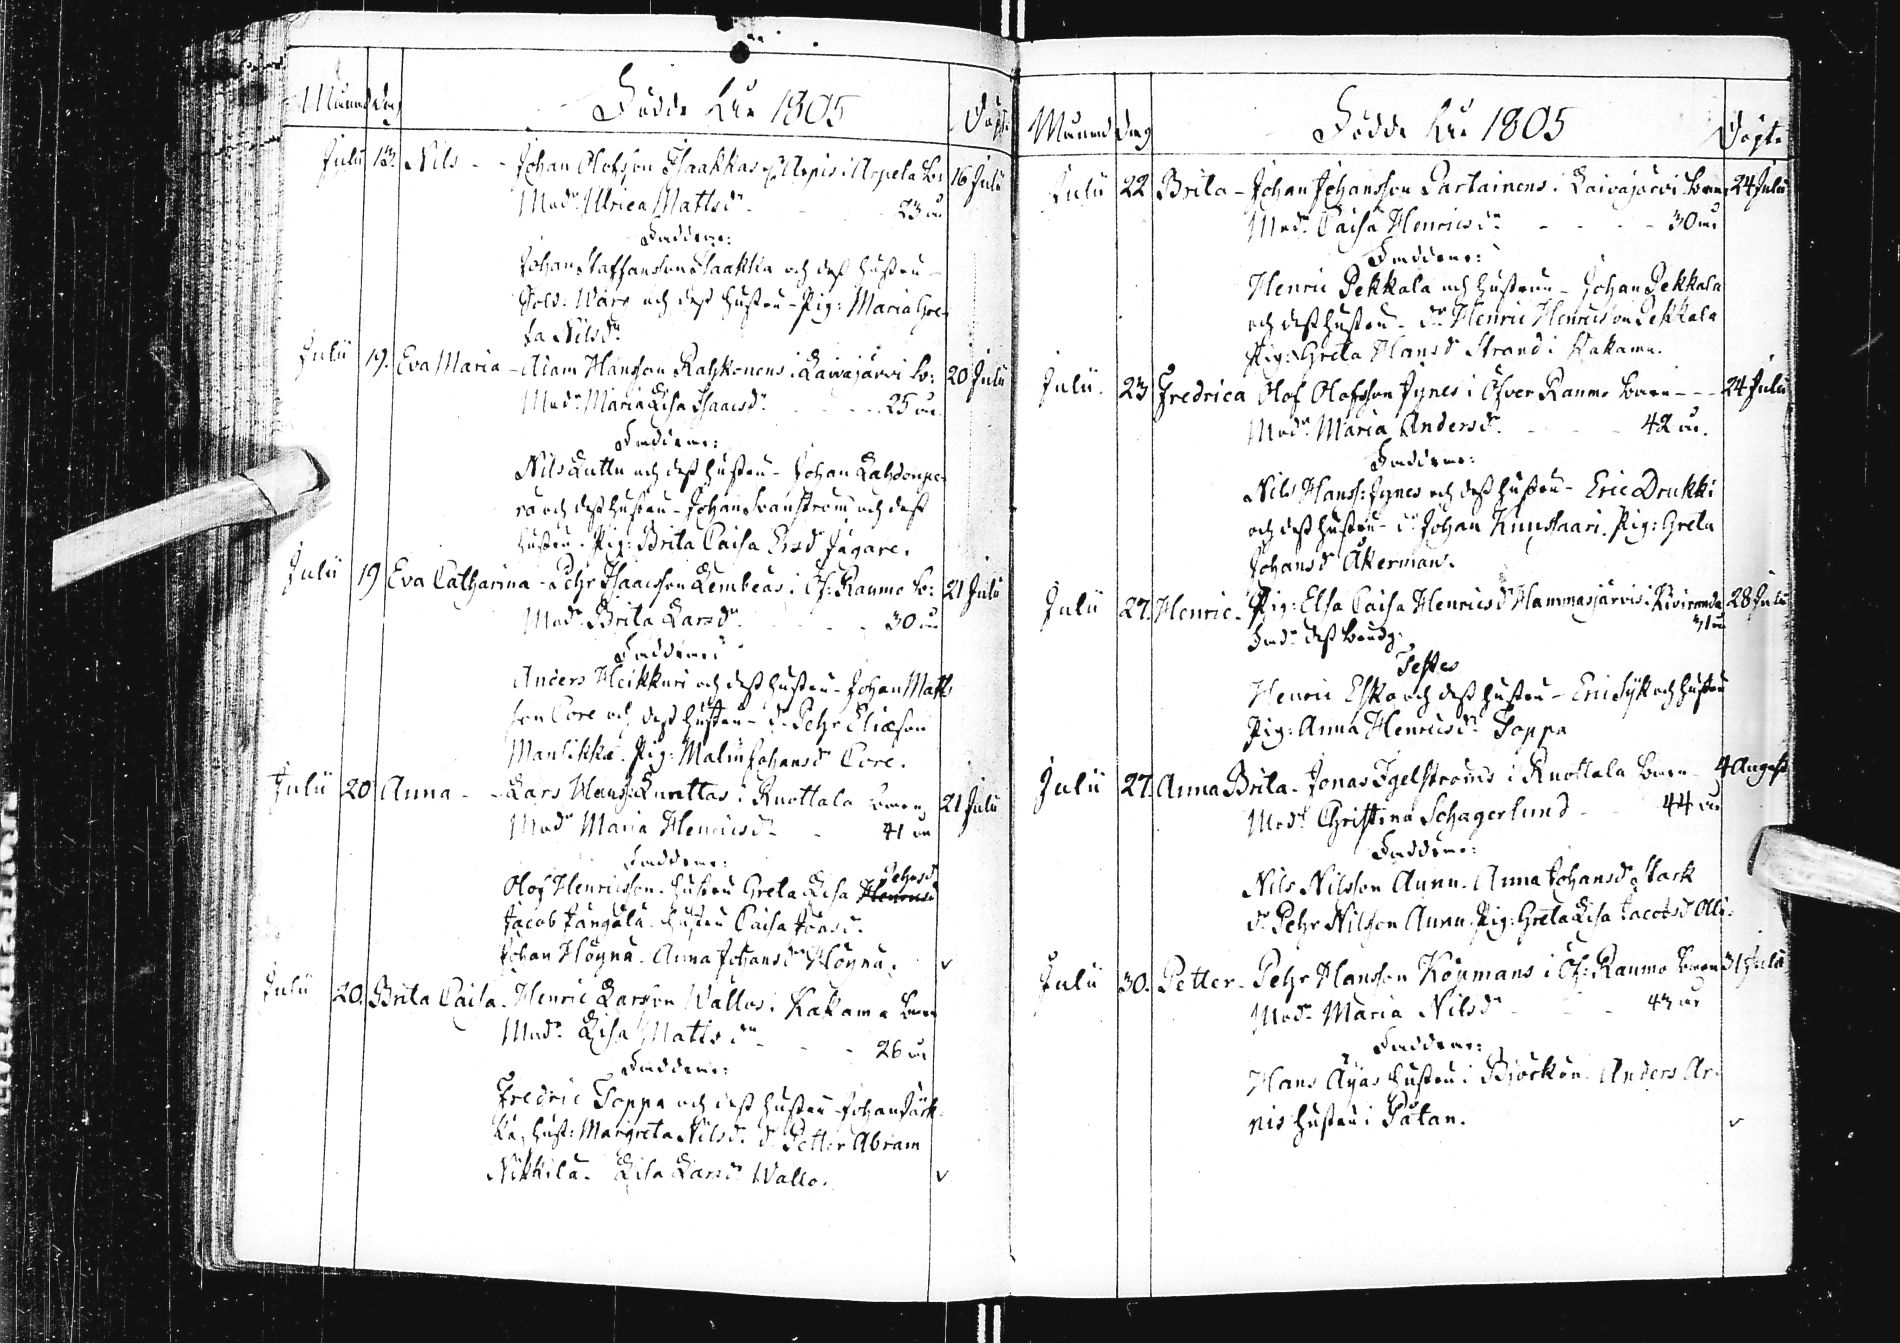 Månad Dag Födde Åhr 1805 Döpte
Julii 13. Nils - - Johan Olofsson Isaakkas Arpis i Arpela b: 16 Julii
Modr. Ulrica Mattsdr. 23 år
Faddrar:
Johan Staffansson Isaakka och dess hustru -
Sold: Ware och dess hustru - Pig: Maria Gre-
ta Nilsdr.
Julii 19. Eva Maria - Adam Hansson Rahkonens i Laivajärvi b: 20 Julii
Modr. Maria Lisa Isaacsdr. 25 år
Faddrar:
Nils Luttu och dess hustru - Johan Lahdenpe-
rä och dess hustru - Johan Svanström och dess
hustru. Pig: Brita Caisa Ersdr Jägare.
Julii 19 Eva Catharina - Pehr Isaacsson Kembeas i Öf: Raumo b: 21 Julii
Modr. Brita Larsdr. 30 år
Faddrar:
Anders Heikkuri och dess hustru - Johan Matts
son Core och dess hustru - dr. Pehr Eliæson
Manlikka. Pig: Malin Johansdr Core.
Julii 20 Anna - - Lars Hanss: Kurattas i Knottala barn 21 Julii
Modr Maria Henricsdr. 41 år
Faddrar:
Olof Henricsson. hustru Greta Lisa Henricsd Pehrsd
Jacob Jängälä. hustru Caisa
Johan Höynä. Anna Johansdr Höynä.
Julii 20. Brita Caisa. Henric Larsson Wallos i Kakama barn
Modr. Lisa Mattsdr - 26 år
Faddrar:
Fredric Soppa och dess hustru - Johan Järk-
kä, hust: Margreta Nilsd. dr Petter Abram
Nikkilä. Lisa Larsdr Wallo.
Månad Dag Födde Åhr 1805 Döpte
Julii 22 Brita - Johan Johansson Partainens i Laivajärvi barn 24 Julii
Modr. Caisa Henricsdr. - - - - 30 år
Faddrar:
Henric Pekkala och hustrun - Johan Pekkala
och dess hustru - dr Henric Henricsson Pekkala
Pig: Greta Hansdr Strand i Kakama.
Julii. 23 Fredrica Olof Olofsson Jynes i Öfver Raumo barn - - - 24 Julii
Modr. Maria Andersdr. - - - 42 år.
Faddrar:
Nils Hanss: Jynes och dess hustru - Eric Drukki
och dess hustru - dr Johan Kunsaari. Pig: Greta
Johansdr Åkerman.
Julii 27. Henric - Pig: Elsa Caisa Henricsdr Hammasjärvis i Kiviranda 28 Julii
Fadr. dess 31 år
Testes
Henric Esko och dess hustru - Eric Syk och hustru
Pig: Anna Henricsdr Soppa
Julii 27. Anna Brita - Jonas Igelströms i Knottala barn - 4 August
Modr. Christina Schagerlund - - 44 år
Faddrar:
Nils Nilsson Aunu. Anna Johansdr Stark
dr Pehr Nilsson Aunu. Pig: Greta Lisa Jacobsd Olli.
Julii 30. Petter - Pehr Hansson Köpmans i Öf: Raumo barn 31 Julii
Modr. Maria Nilsdr - - - 43 år
Faddrar:
Hans Äyäs hustru i Björkön. Anders Ar-
nis hustru i Påtan.